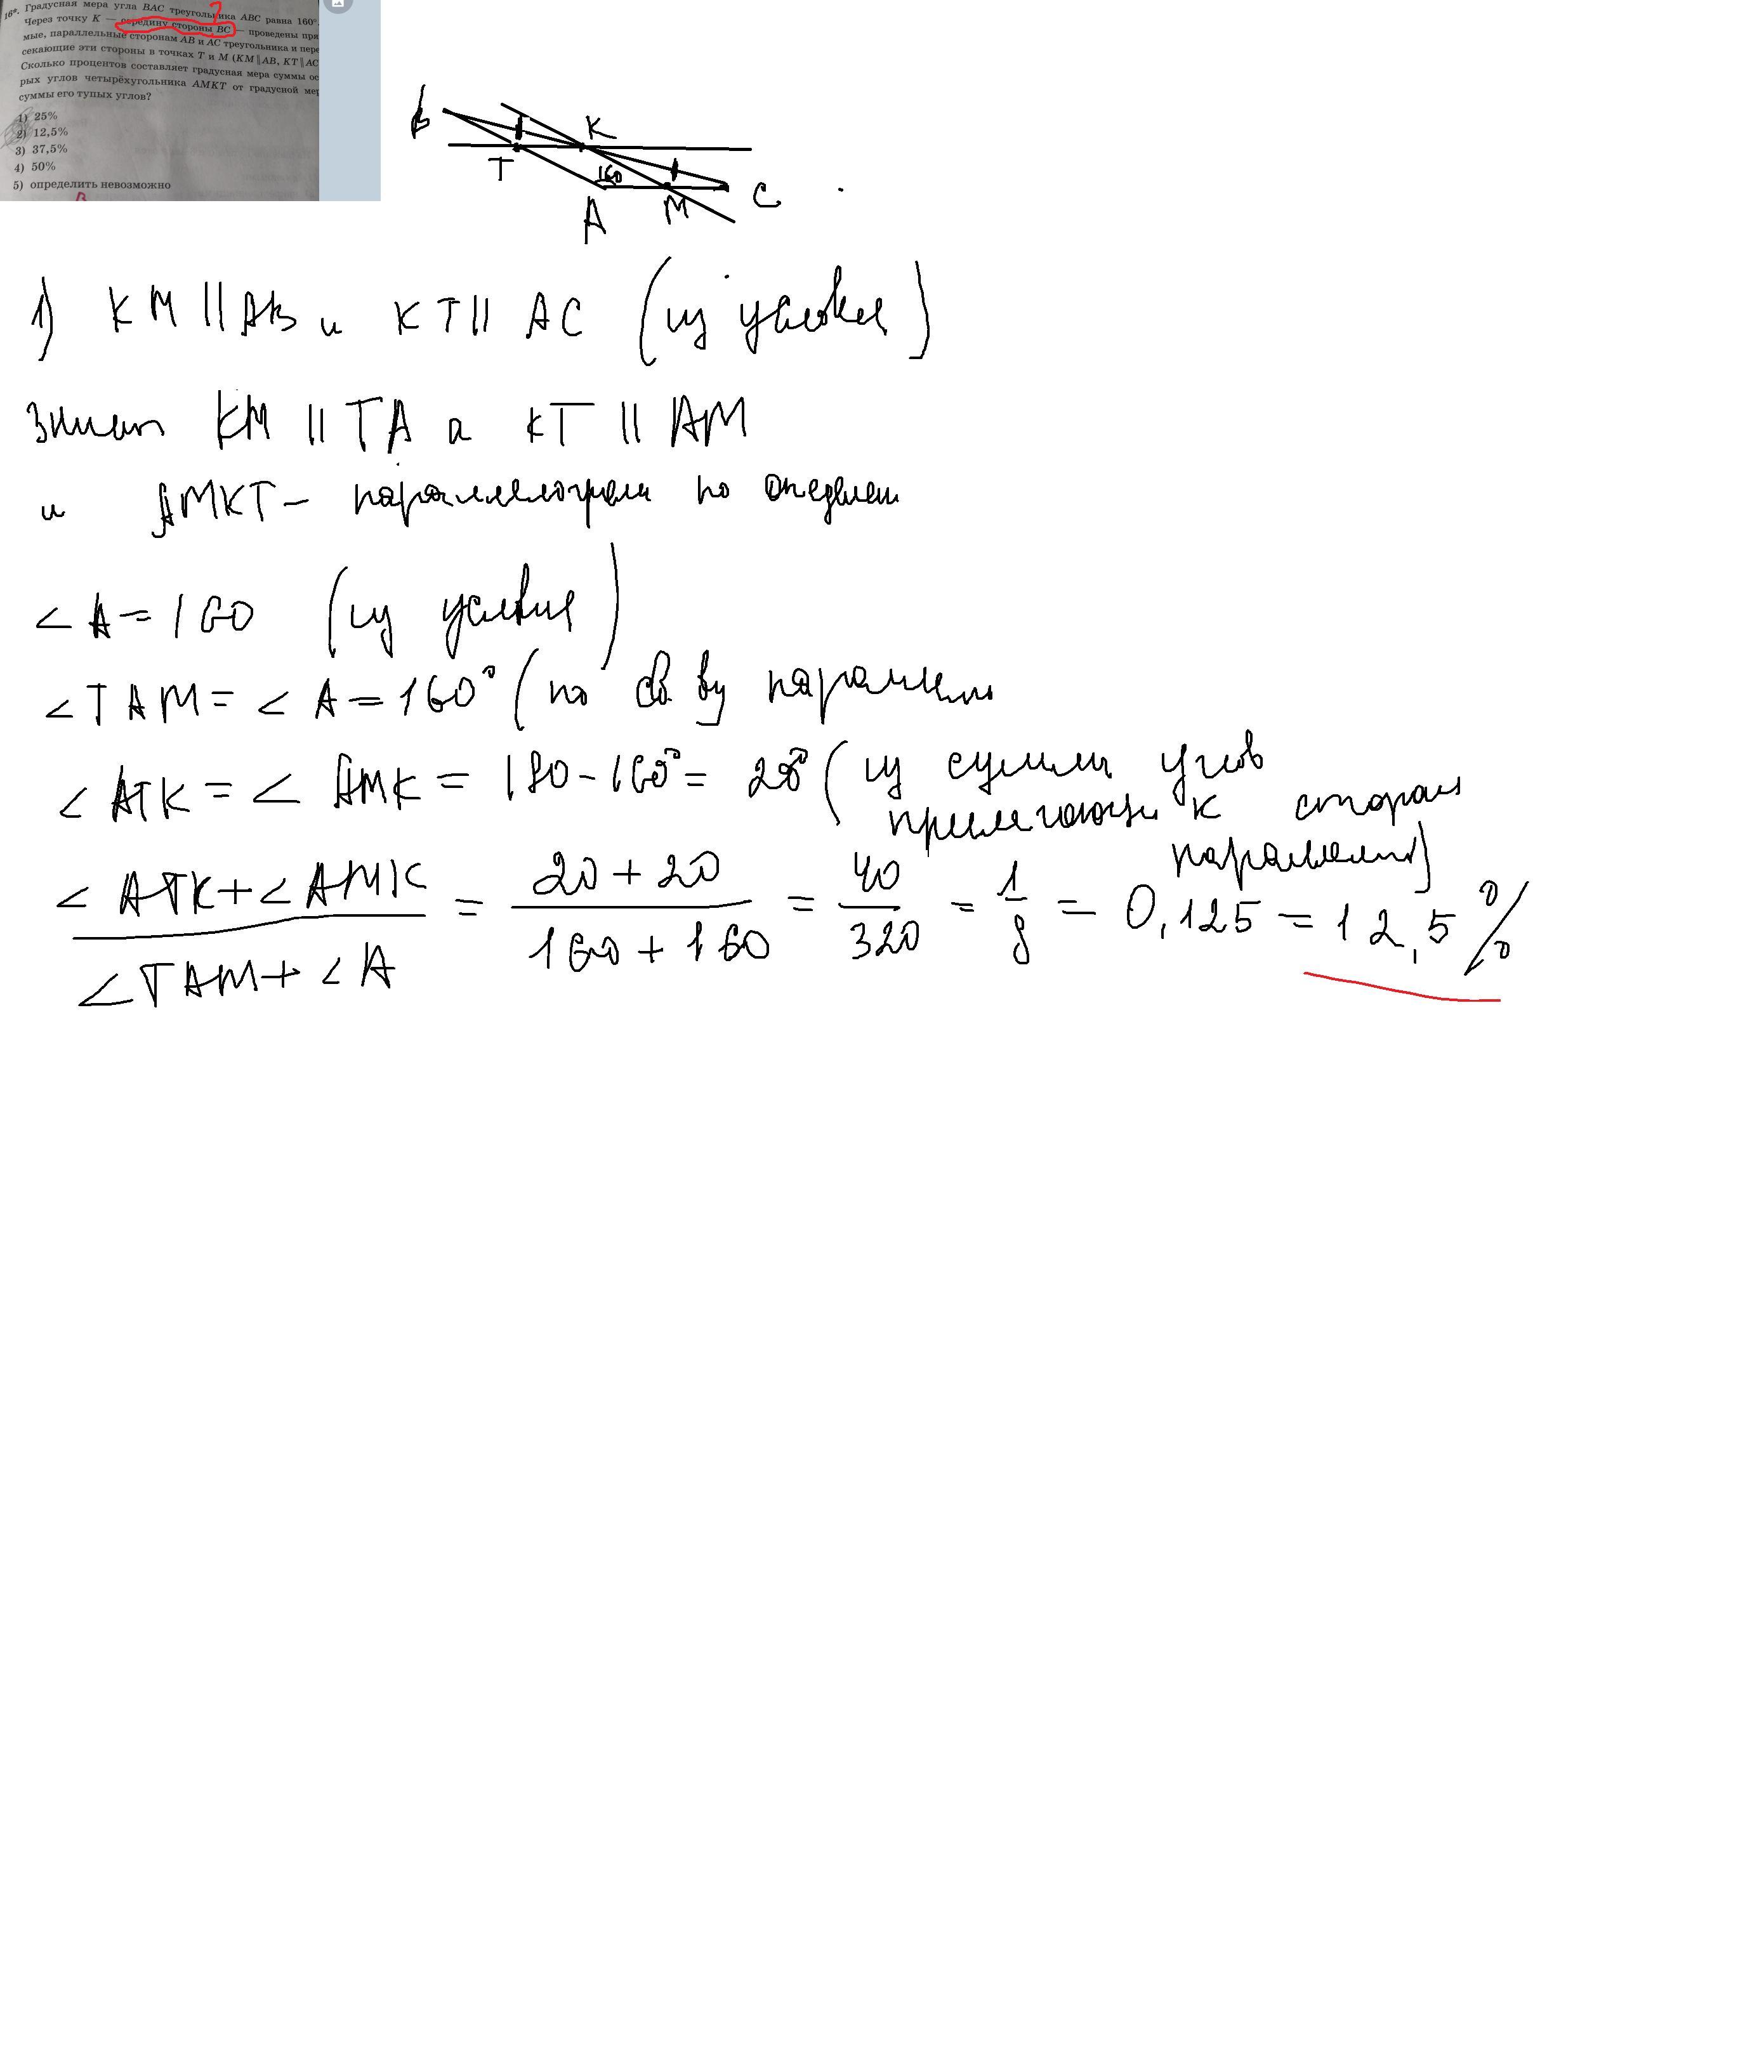 16*. Градусная мера угла BAC треугольника ABC равна 160°.
Через точку K — середину стороны BC — проведены пря
мые, параллельные сторонам AB и AC треугольника и пере
секающие эти стороны в точках T и M (KM || AB, KT || AC
Сколько процентов составляет градусная мера суммы ос
рых углов четырёхугольника AMKT от градусной мер
суммы его тупых углов?
1) 25%
2) 12,5%
3) 37,5%
4) 50%
5) определить невозможно
B
K
T
160
A
M
C
1) KM || AB и KT || AC (из условия)
KM || TA а KT || AM
и AMKT – по
∠A = 160 (из условия)
∠TAM = ∠A = 160° (по св ву
∠ATK = ∠AMK = 180 – 160° = 20° (из суммы углов
к сторон
∠ATK + ∠AMK / ∠TAM + ∠A = 20 + 20 / 160 + 160 = 40 / 320 = 1 / 8 = 0,125 = 12,5 %